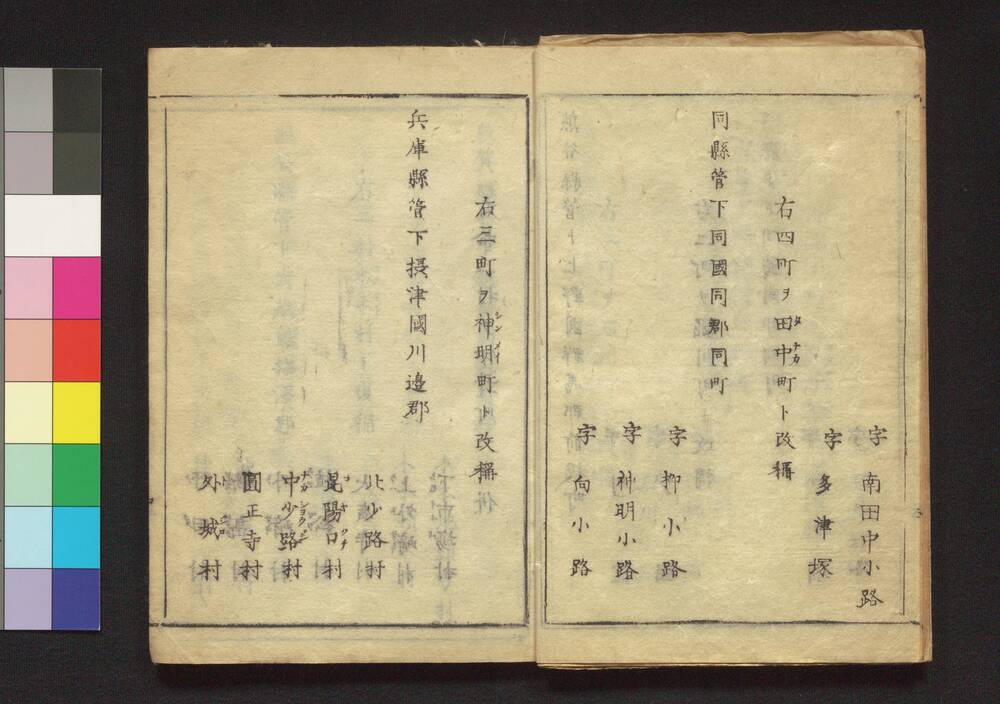 字 南田中小路
字 多津塚
右四町ヲ田中町ト改稱
同縣管下同國同郡同町
字 柳小路
字 神明小路
字 向小路
右三町ヲ神明町ト改稱
兵庫縣管下摂津國川邉郡
北少路村
昆陽口村
中少路村
圓正寺村
外城村